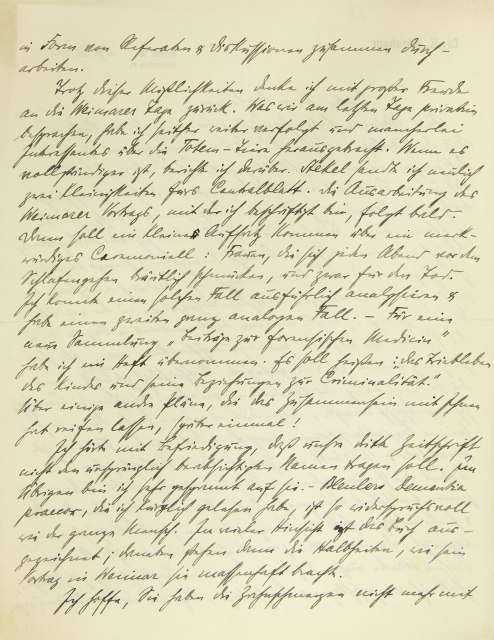 in Form von Referaten & Diskussionen zusammen durch-
arbeiten.
Trotz dieser Mißlichkeiten denke ich mit großer Freude
an die Weimarer Tage zurück. Was wir am letzten Tage privatim
besprachen, habe ich seither weiter verfolgt und mancherlei
Interessantes über die Totem-Tiere herausgebracht. Wenn es
vollständiger ist, berichte ich darüber. Stekel sandte ich neulich
zwei Kleinigkeiten fürs Centralblatt. Die Ausarbeitung des
Weimarer Vortrags, mit der ich beschäftigt bin, folgt bald.
Dann soll ein kleiner Aufsatz kommen über ein merk-
würdiges Ceremoniell: Frauen, die sich jeden Abend vor dem
Schlafengehen bräutlich schmücken, und zwar für den Tod.
Ich konnte einen solchen Fall ausführlich analysieren &
habe einen zweiten ganz analogen Fall. – Für eine
neue Sammlung „Beiträge zur forensischen Medicin"
habe ich ein Heft übernommen. Es soll heißen: „das Triebleben
des Kindes und seine Beziehungen zur Criminalität."
Über einige andre Pläne, die das Zusammensein mit Ihnen
hat reifen lassen, später einmal!
Ich hörte mit Befriedigung, daß unsre dritte Zeitschrift
nicht den ursprünglich beabsichtigten Namen tragen soll. Im
Übrigen bin ich sehr gespannt auf sie. – Bleulers Dementia
praecox, die ich kürzlich gelesen habe, ist so widerspruchsvoll
wie der ganze Mensch. In vieler Hinsicht ist das Buch aus-
gezeichnet; daneben stehen dann die Halbheiten, wie sein
Vortrag in Weimar sie massenhaft brachte.
Ich hoffe, Sie haben die Zahnschmerzen nicht mehr mit